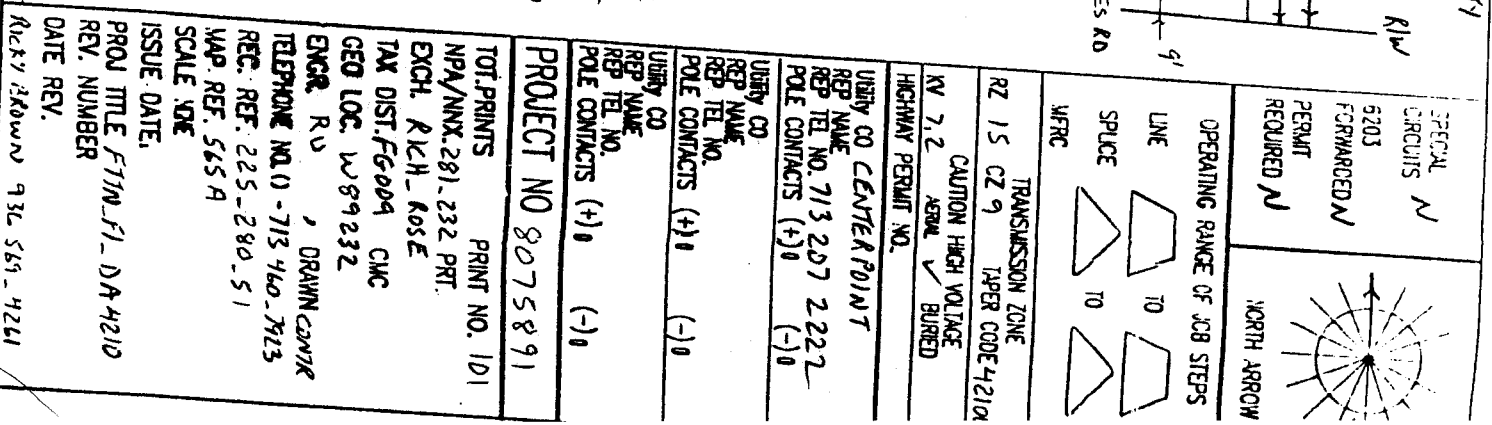 R/W
9'
ES RD
SPECIAL
CIRCUITS N
6203
FORWARDED N
PERMIT
REQUIRED N
NORTH ARROW
OPERATING RANGE OF JOB STEPS
LINE TO
SPLICE TO
WFRC
TRANSMISSION ZONE
RZ 15 CZ 9 TAPER CODE 4210
CAUTION HIGH VOLTAGE
KV 7.2 AERIAL ✓ BURIED
HIGHWAY PERMIT NO.
Utility CO CENTERPOINT
REP NAME
REP TEL NO. 713 207 2222
POLE CONTACTS (+) 0 (-) 0
Utility CO
REP NAME
REP TEL NO.
POLE CONTACTS (+) 0 (-) 0
Utility CO
REP NAME
REP TEL NO.
POLE CONTACTS (+) 0 (-) 0
PROJECT NO 8075891
TOT.PRINTS PRINT NO. 101
NPA/NNX.281.232 PRT.
EXCH. RICH_ROSE
TAX DIST.FG009 CWC
GEO LOC. W89232
ENGR. RV , DRAWN CONTR
TELEPHONE NO.() - 713 460-7423
REC. REF. 225-280-51
MAP. REF. 565A
SCALE NONE
ISSUE DATE.
PROJ TITLE FTTN_F1_DA4210
REV. NUMBER
DATE REV.
RICKY BROWN 936 569-4261